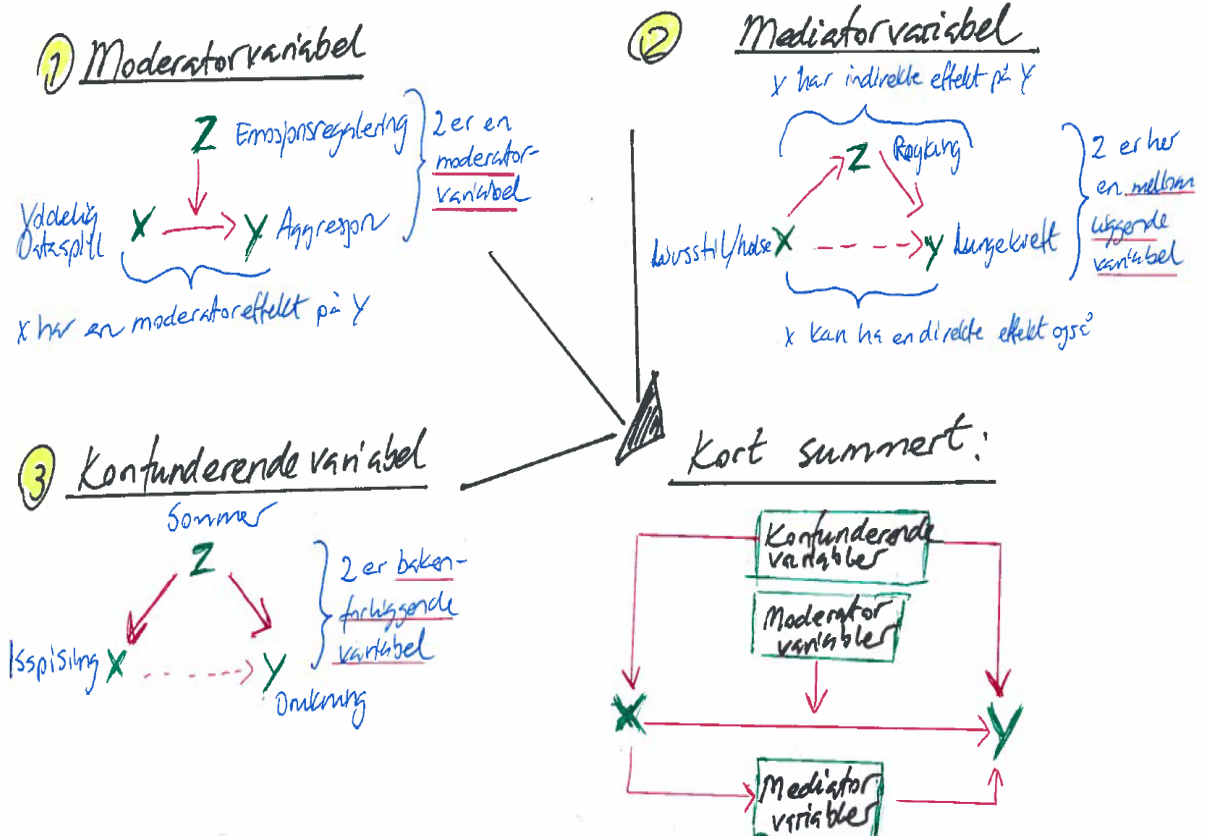 1 Moderatorvariabel
Z Emosjonsregulering
X Y Aggresjon
Dataspill
Z er en
moderator-
variabel
X har en moderatoreffekt på Y
2 Mediatorvariabel
X har indirekte effekt på Y
Z Røyking
Livsstil/helse X Y Lungekreft
Z er her
en mellom
liggende
variabel
X kan ha en direkte effekt også
3 Konfunderende variabel
Sommer
Z
Isspising X Y
Drukning
Z er baken-
forliggende
variabel
Kort summert:
Konfunderende
variabler
Moderator
variabler
X Y
Mediator
variabler